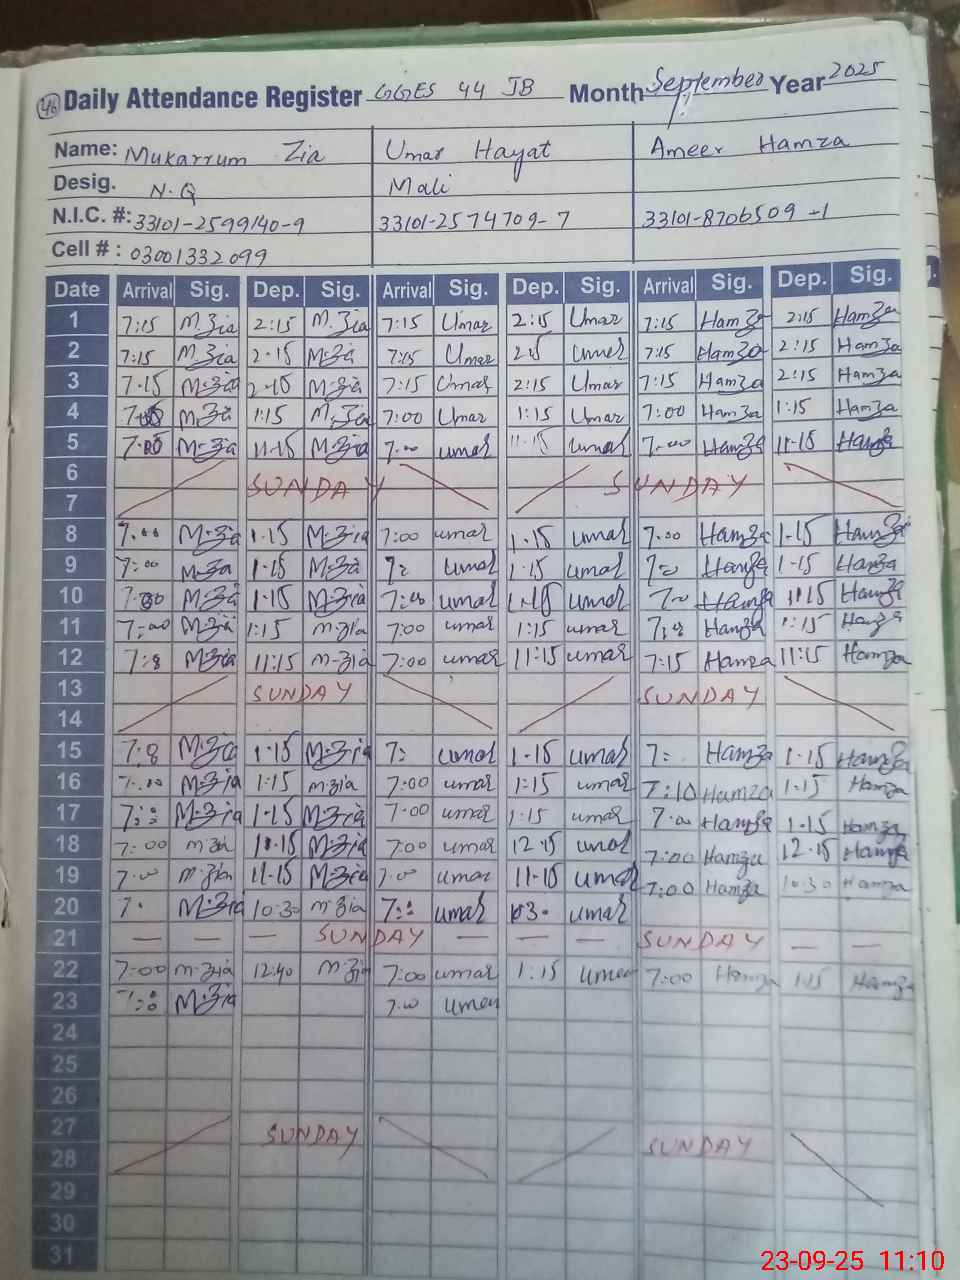 46 Daily Attendance Register GGES 44 JB Month September Year 2025
Name: Mukarrum Zia Umar Hayat Ameer Hamza
Desig. N.Q Mali
N.I.C. #: 33101-2599140-9 33101-2574709-7 33101-8706509-1
Cell # : 03001332099
Date Arrival Sig. Dep. Sig. Arrival Sig. Dep. Sig. Arrival Sig. Dep. Sig.
1 7:15 M.Zia 2:15 M.Zia 7:15 Umar 2:15 Umar 7:15 Hamza 2:15 Hamza
2 7:15 M.Zia 2.15 M.Zia 7:15 Umar Umar 7:15 Hamza 2:15 Hamza
3 7.15 M.Zia M.Zia 7:15 Umar 2:15 Umar 7:15 Hamza 2:15 Hamza
4 M.Zia 1:15 M.Zia 7:00 Umar 1:15 Umar 7:00 Hamza 1:15 Hamza
5 M.Zia 11.15 M.Zia 7.00 umar 11.15 umar 7.00 Hamza 11.15 Hamza
6 SUNDAY SUNDAY
7
8 7.00 M.Zia 1.15 M.Zia 7:00 umar 1.15 umar 7.00 Hamza 1.15 Hamza
9 7:00 M.Zia 1.15 M.Zia umar 1:15 umar Hamza 1.15 Hamza
10 M.Zia 1.15 M.Zia 7:00 umar umar Hamza Hamza
11 7:00 M.Zia 1:15 M.Zia 7:00 umar 1:15 umar Hamza 1:15 Hamza
12 M.Zia 11:15 M.Zia 7:00 umar 11:15 umar 7:15 Hamza 11:15 Hamza
13 SUNDAY SUNDAY
14
15 M.Zia 1.15 M.Zia 7: umar 1.15 umar 7: Hamza 1.15 Hamza
16 7.00 M.Zia 1:15 M.Zia 7:00 umar 1:15 umar 7:10 Hamza 1.15 Hamza
17 M.Zia 1.15 M.Zia 7.00 umar 1:15 umar 7.00 Hamza 1.15 Hamza
18 7:00 M.Zia M.Zia 7:00 umar 12.15 umar 7:00 Hamza 12.15 Hamza
19 7.00 M.Zia 11.15 M.Zia 7.00 umar 11.15 umar 7:00 Hamza 10:30 Hamza
20 7. M.Zia 10:30 M.Zia umar umar
21 — — — SUNDAY — — — SUNDAY — —
22 7:00 M.Zia 12:40 M.Zia 7:00 umar 1:15 umar 7:00 Hamza 1:15 Hamza
23 M.Zia 7.00 umar
24
25
26
27 SUNDAY SUNDAY
28
29
30
31
23-09-25 11:10